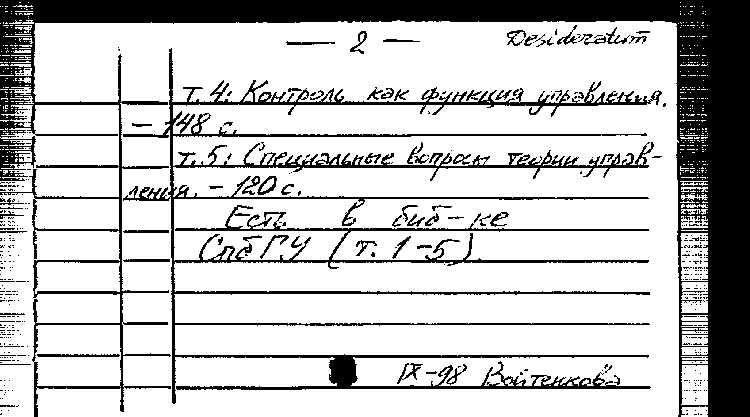 — 2 — Desideratum
т. 4: Контроль как функция управления.
— 148 с.
т. 5: Специальные вопросы теории управ-
ления. — 120 с.
Есть в биб-ке
СПбГУ (т. 1-5).
IX-98 Войтенкова